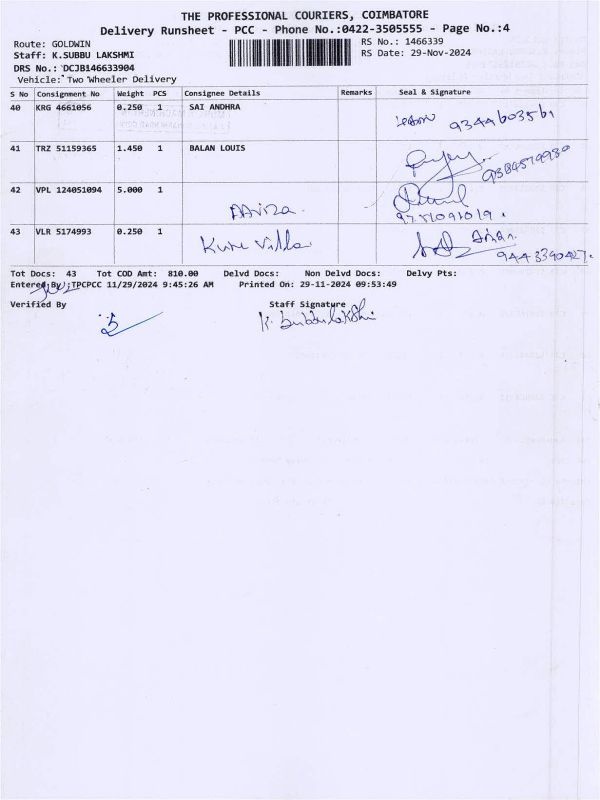 THE PROFESSIONAL COURIERS, COIMBATORE
Delivery Runsheet - PCC - Phone No.:0422-3505555 - Page No.:4
Route: GOLDWIN
RS No.: 1466339
Staff: K.SUBBU LAKSHMI
RS Date: 29-Nov-2024
DRS No.: DCJB146633904
Vehicle: Two Wheeler Delivery
S No Consignment No Weight PCS Consignee Details Remarks Seal & Signature
40 KRG 4661056 0.250 1 SAI ANDHRA
9344603561
41 TRZ 51159365 1.450 1 BALAN LOUIS
9384579930
42 VPL 124051094 5.000 1
9751091019.
43 VLR 5174993 0.250 1
Kure Villa
9443390427.
Tot Docs: 43 Tot COD Amt: 810.00 Delvd Docs: Non Delvd Docs: Delvy Pts:
Entered By: TPCPCC 11/29/2024 9:45:26 AM Printed On: 29-11-2024 09:53:49
Verified By Staff Signature
K. Subbulakshmi